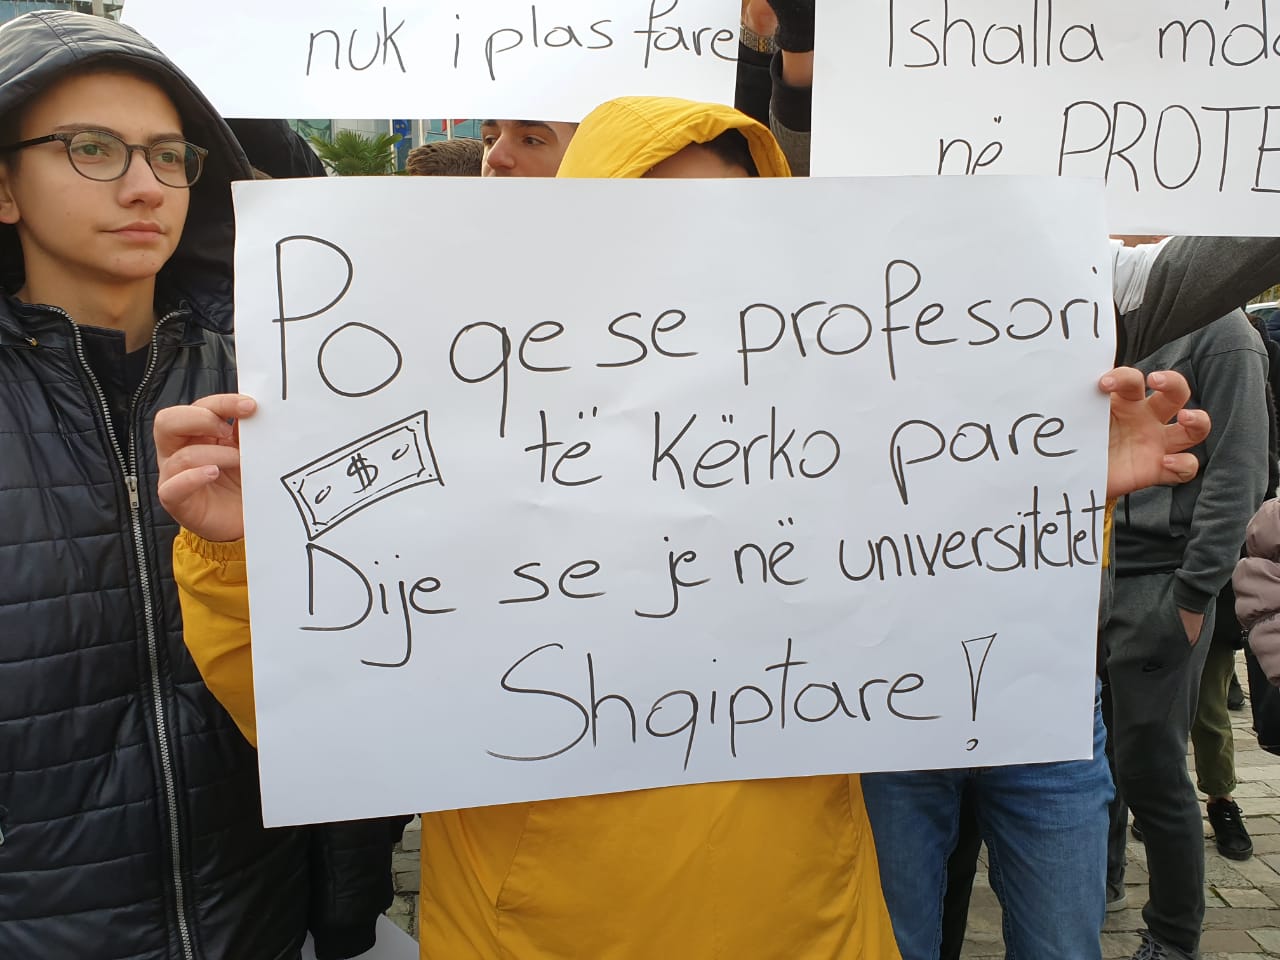 nuk i plas fare
Ishalla
në
Po qe se profesori
$ të kërko pare
Dije se je në universitetet
Shqiptare!